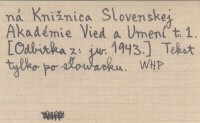 ná Knižnica Slovenskej
Akadémie Vied a Umení t. 1.
[Odbitka z: jw. 1943.] Tekst
tylko po słowacku. WHP